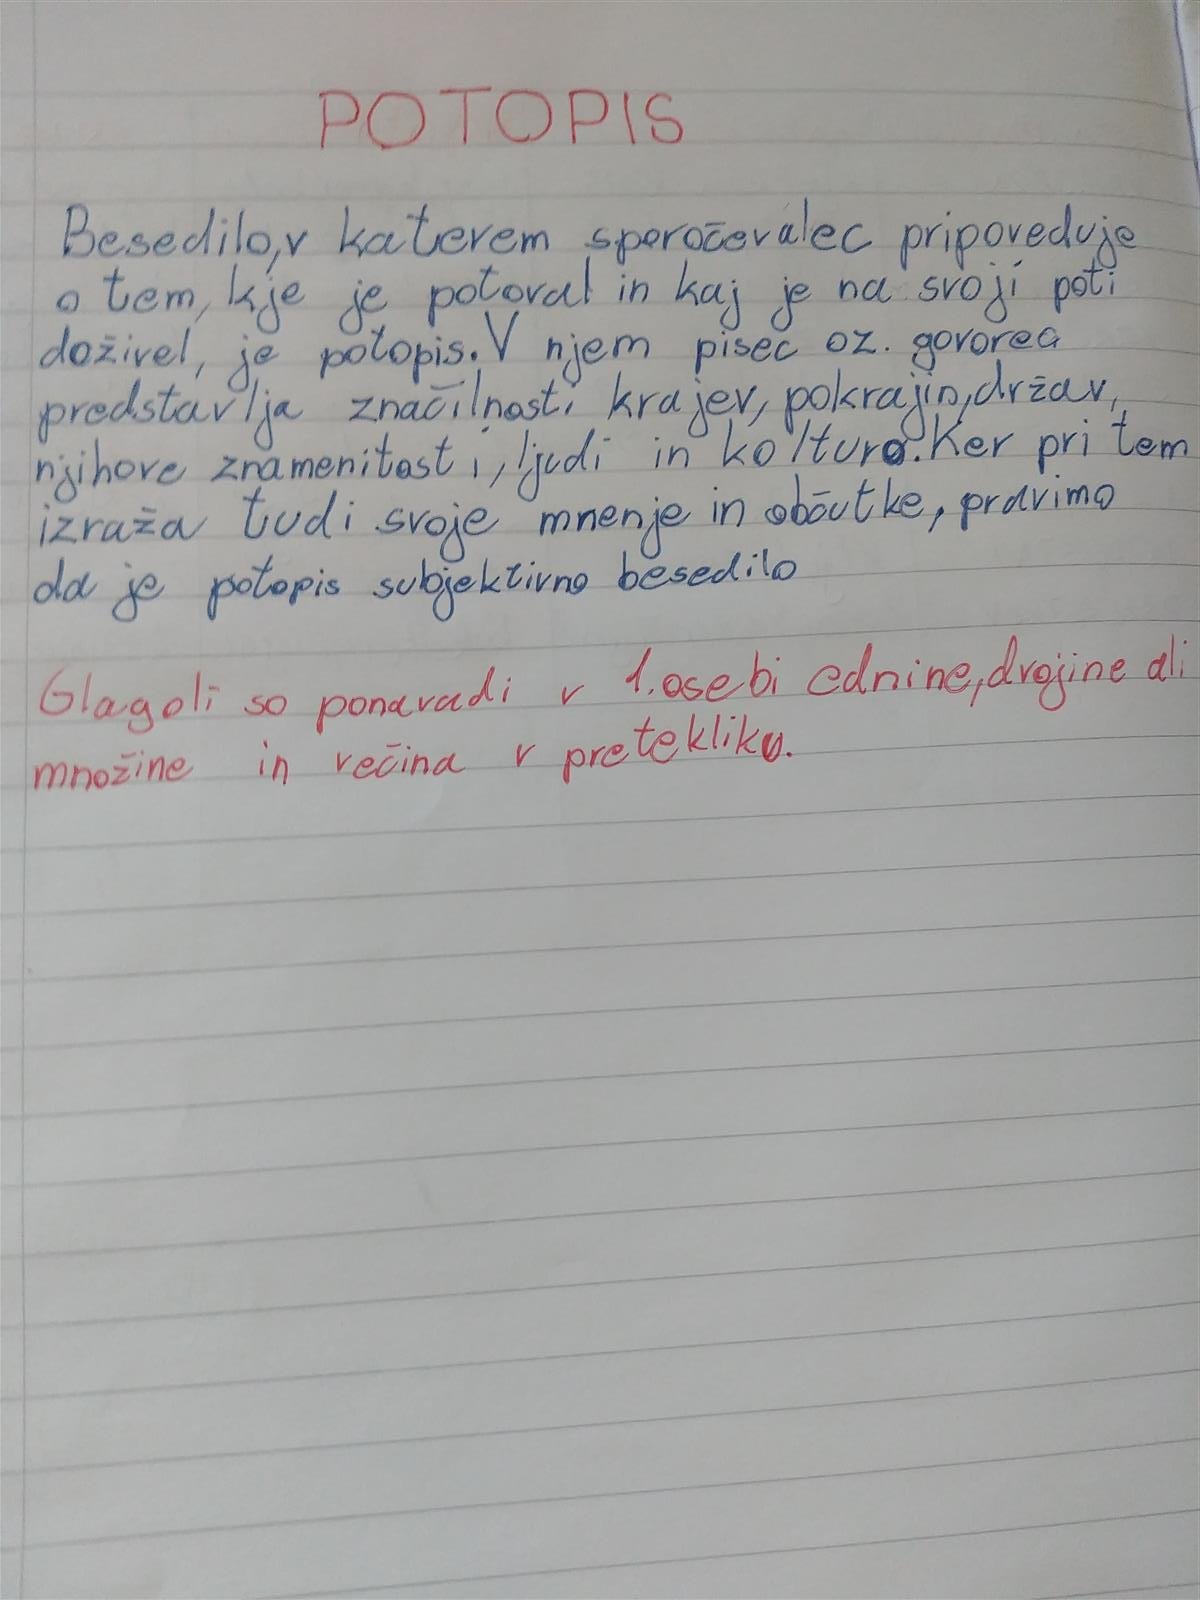 POTOPIS
Besedilo, v katerem sporočevalec pripoveduje
o tem, kje je potoval in kaj je na svoji poti
doživel, je potopis. V njem pisec oz. govorec
predstavlja značilnosti krajev, pokrajin, držav,
njihove znamenitosti, ljudi in kolturo. Ker pri tem
izraža tudi svoje mnenje in občutke, pravimo
da je potopis subjektivno besedilo
Glagoli so ponavadi v 1. osebi ednine, dvojine ali
množine in večina v pretekliku.